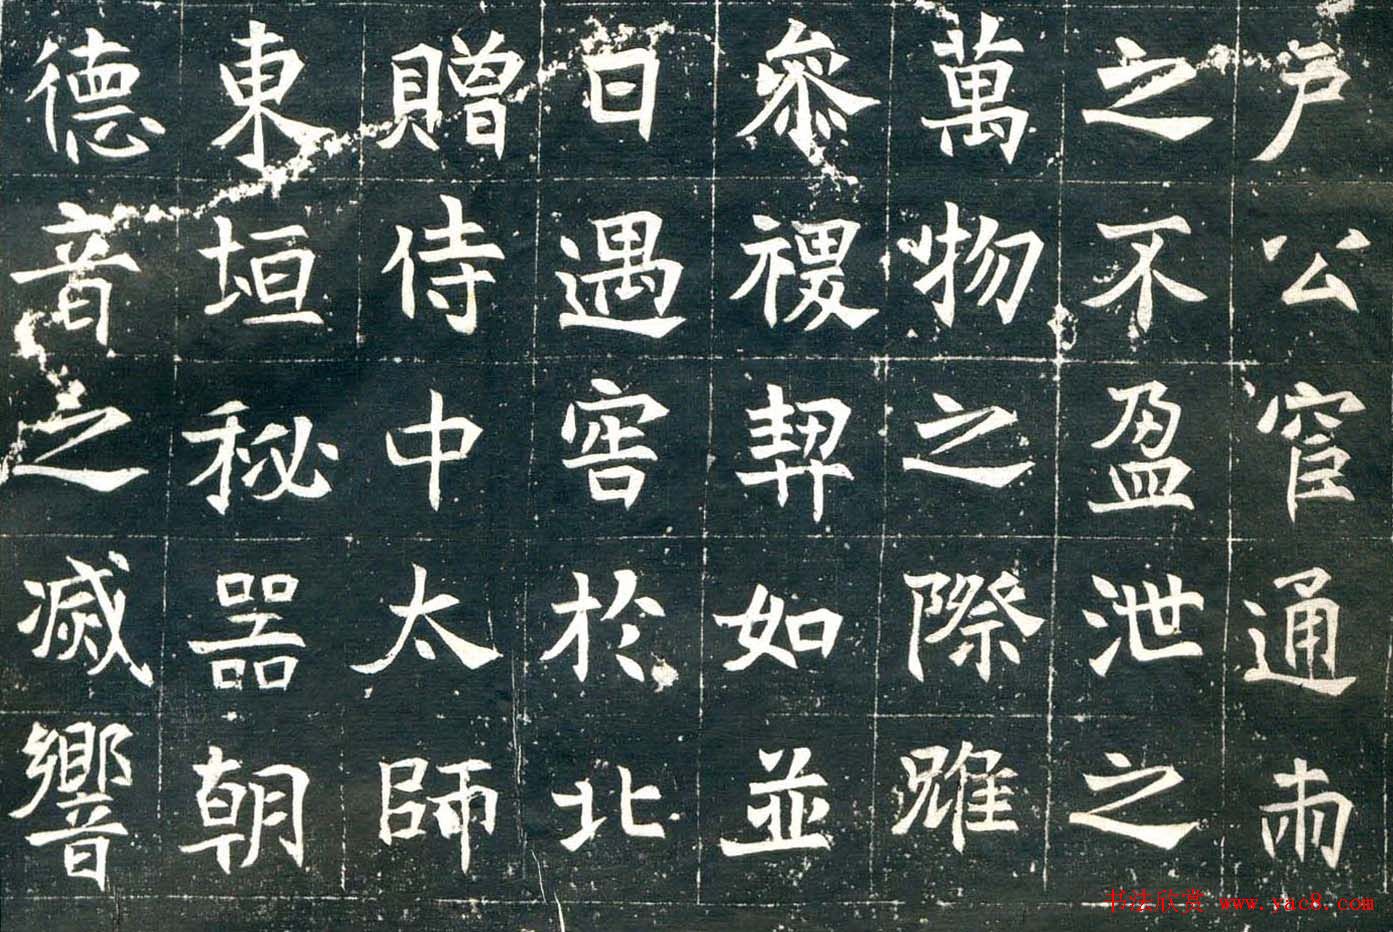 户公宦通雨
之不盈泄之
萬物之際雖
參禝契如並
日遇害於北
贈侍中太師
東垣秘器朝
德音之滅響
书法欣赏 www.yac8.com